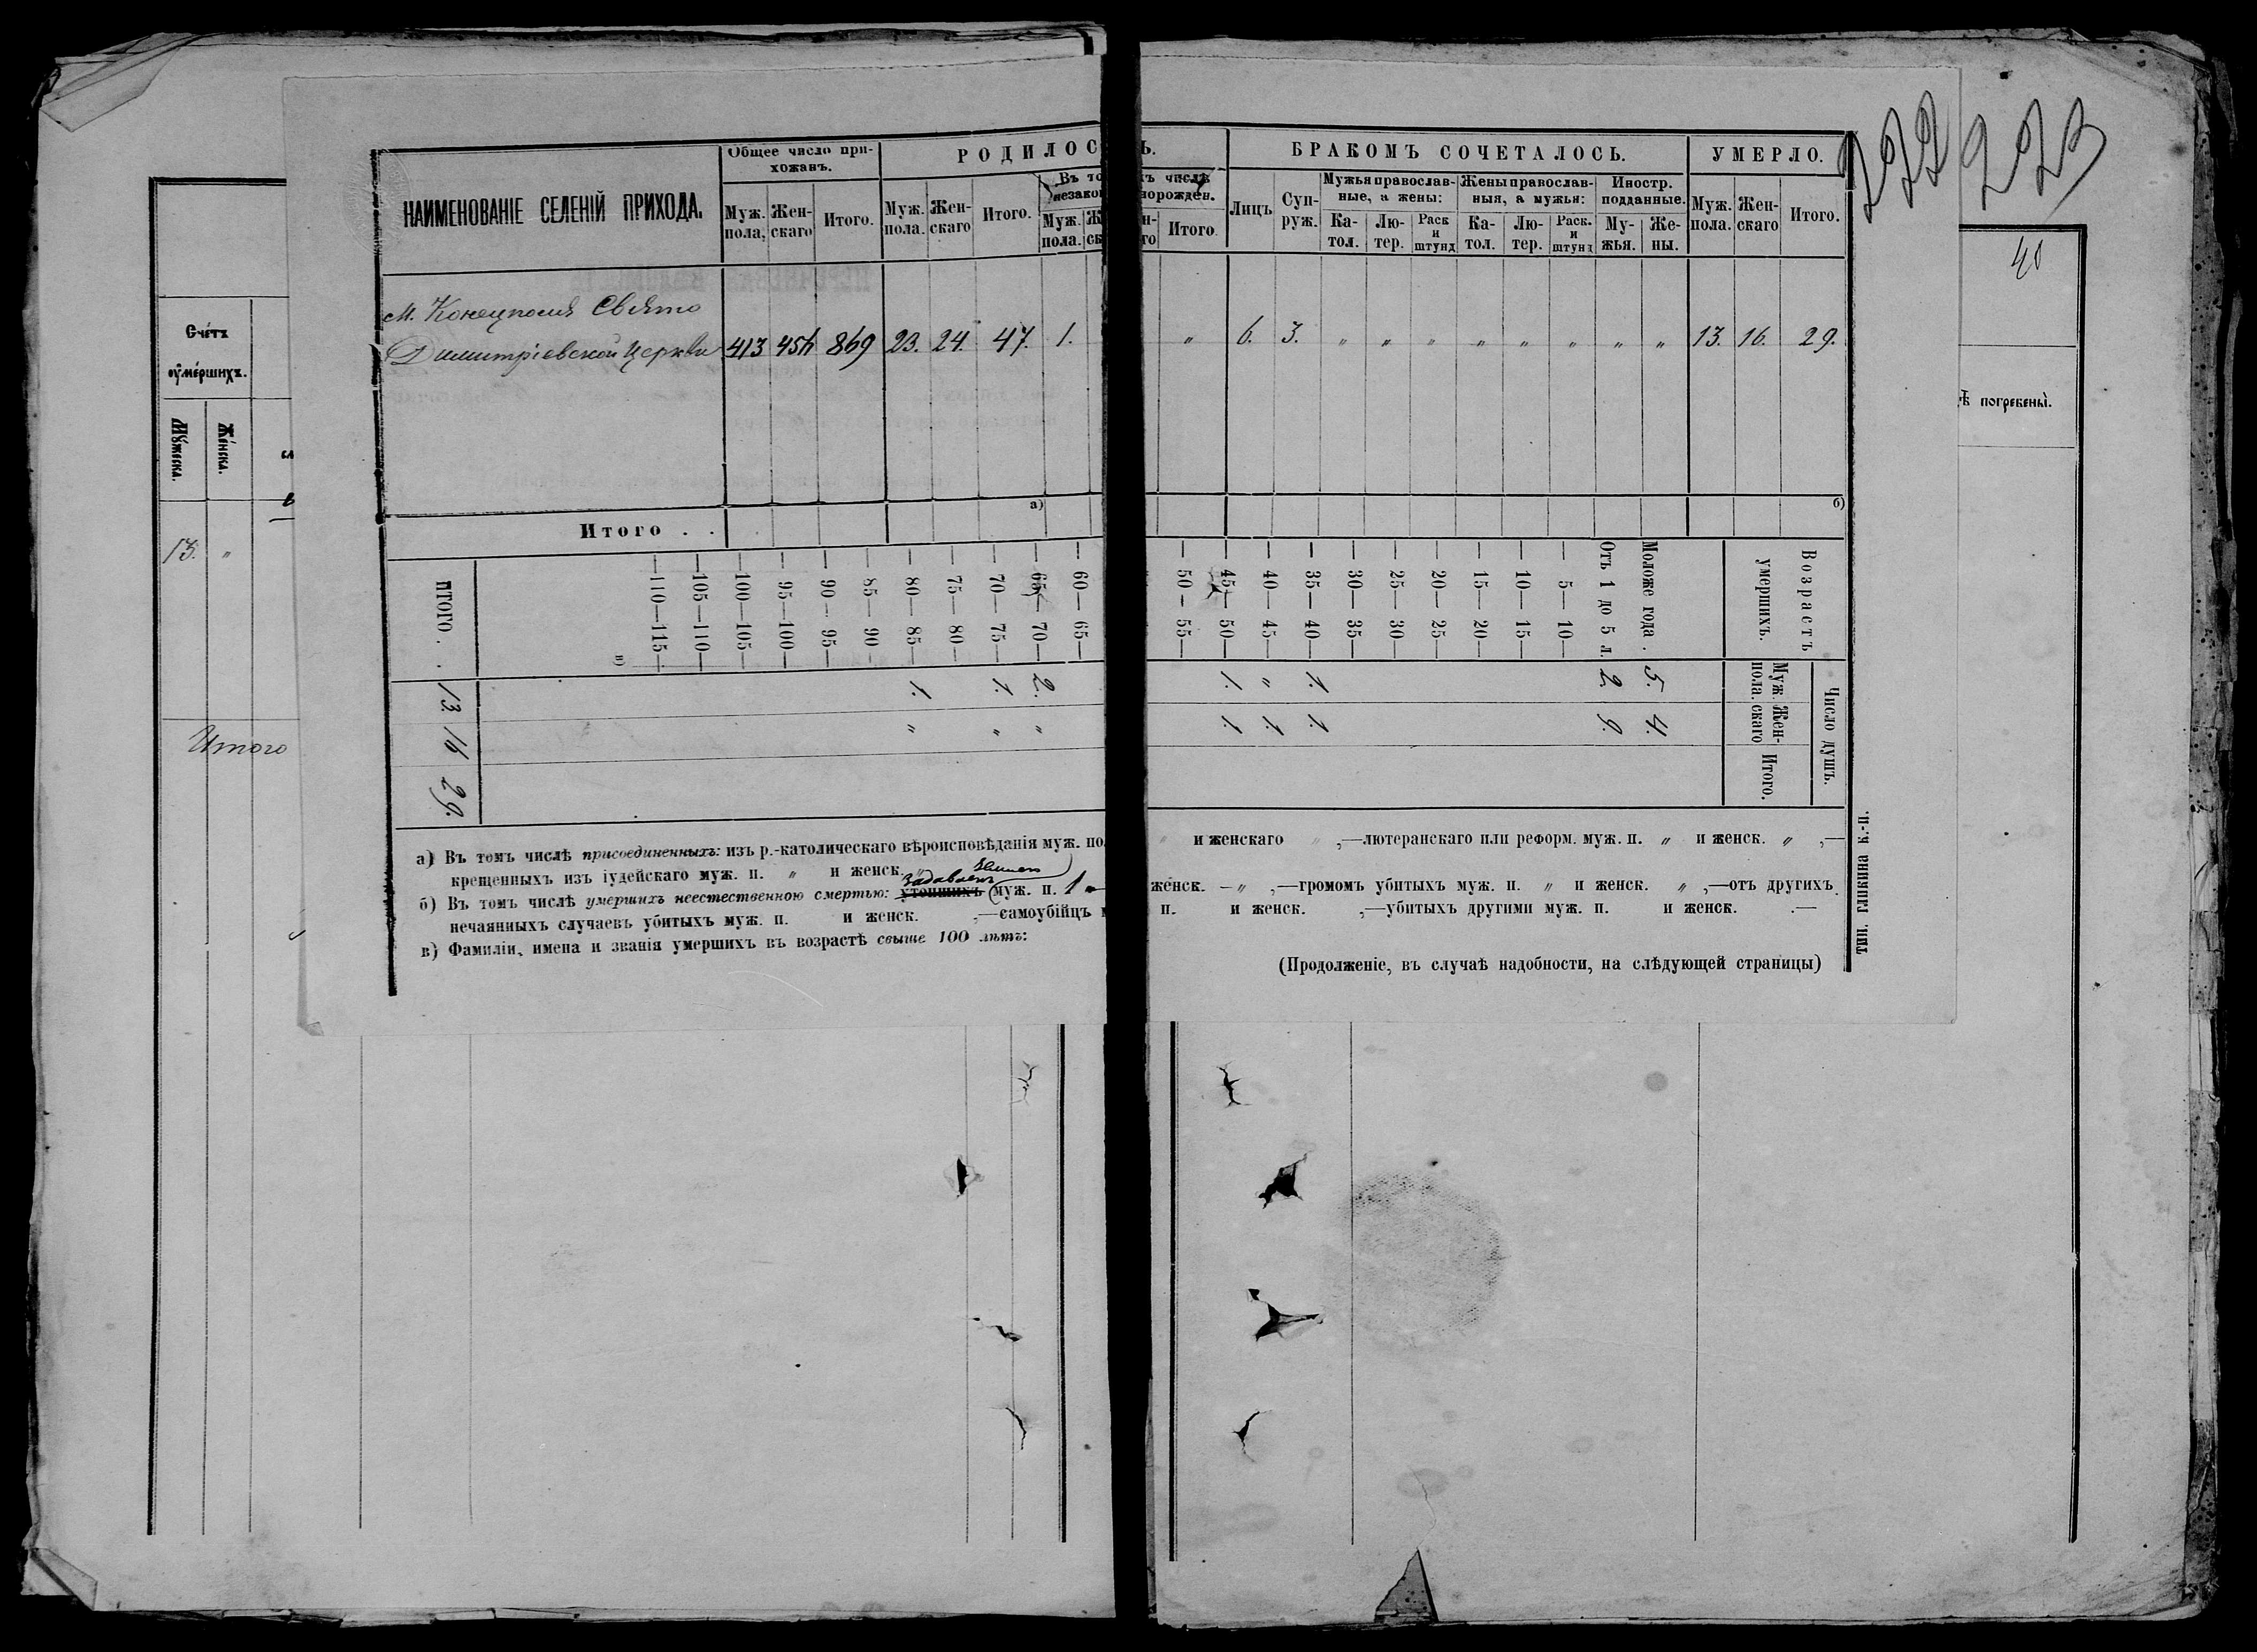 222 223
40
НАИМЕНОВАНІЕ СЕЛЕНІЙ ПРИХОДА.
Общее число при-
хожанъ.
Муж. пола. Жен- скаго Итого.
РОДИЛОС Ь.
Муж. пола. Жен- скаго Итого.
Въ то мъ числѣ
незакон норожден.
Муж. пола. Итого.
БРАКОМЪ СОЧЕТАЛОСЬ.
Лицъ Суп- руж.
Мужья православ- ные, а жены:
Ка- тол. Лю- тер. Раск и штунд
Жены православ- ныя, а мужья:
Ка- тол. Лю- тер. Раск. и штунд
Иностр. подданные.
Му- жья. Же- ны.
УМЕРЛО.
Муж. пола. Жен- скаго Итого.
м. Конецполя Свято
Димитріевской церкви 413 456 869 23. 24. 47. 1. " 6. 3. " " " " " " " " 13. 16. 29.
Итого . . а) б)
Возрастъ умершихъ.
Число душъ.
Муж. пола. Жен- скаго Итого.
Моложе года . 5. 4.
Отъ 1 до 5 л. 2. 9.
— 5— 10—
— 10— 15—
— 15— 20—
— 20— 25—
— 25— 30—
— 30— 35—
— 35— 40— 1. 1.
— 40— 45— " 1.
— 45— 50— 1. 1.
— 50— 55—
— 60— 65—
— 65— 70— 2. "
— 70— 75— 1. "
— 75— 80—
— 80— 85— 1. "
— 85— 90—
— 90— 95—
— 95—100—
—100—105—
—105—110—
—110—115—
в)
ИТОГО . . 13. 16 29.
а) Въ томъ числѣ присоединенныхъ: изъ р.-католическаго вѣроисповѣданія муж. по и женскаго " ,—лютеранскаго или реформ. муж. п. " и женск. " ,—
крещенныхъ изъ іудейскаго муж. п. " и женск. "
б) Въ томъ числѣ умершихъ неестественною смертью: утопшихъ муж. п. 1 — женск. — " ,—громомъ убитыхъ муж. п. " и женск. " ,—отъ другихъ
нечаянныхъ случаевъ убитыхъ муж. п. и женск. ,—самоубійцъ м п. и женск. ,—убитыхъ другими муж. п. и женск. .—
в) Фамиліи, имена и званія умершихъ въ возрастѣ свыше 100 лѣтъ:
(Продолженіе, въ случаѣ надобности, на слѣдующей страницы)
тип. глікина к.-п.
Счетъ
оумершихъ.
Мужеска. Женска.
13. "
Итого
ѣ погребены.